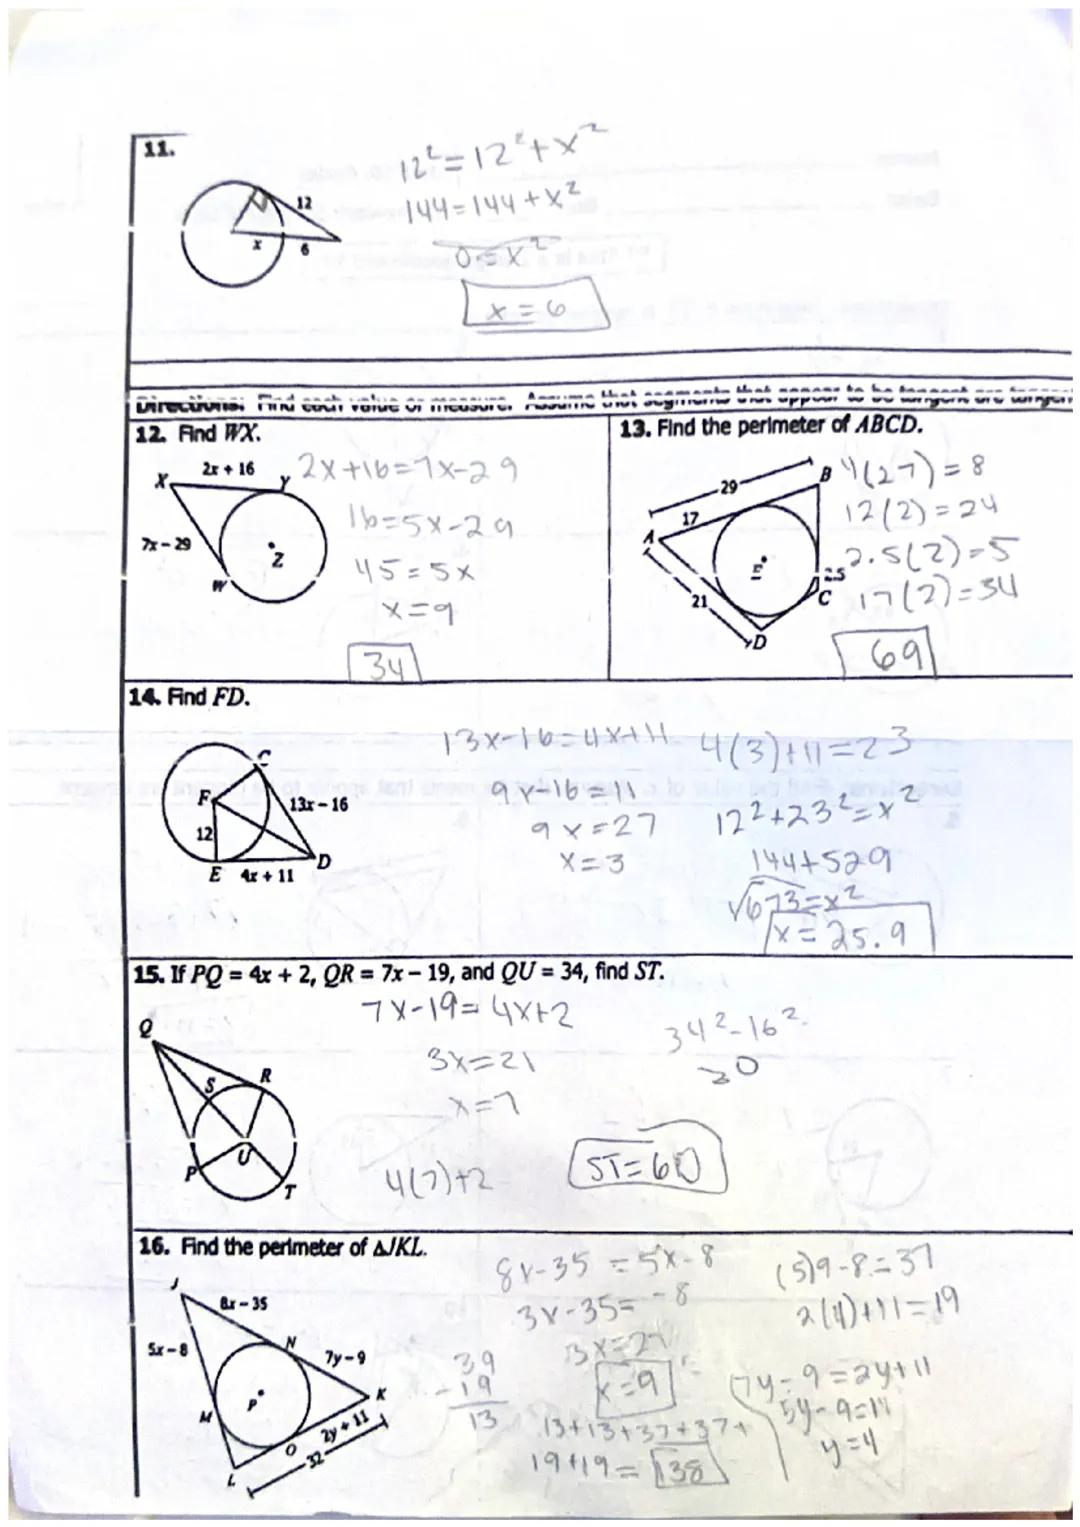 11.
12² = 12² + x²
144 = 144 + x²
0 = x²
x = 6
12
x
6
Directions: Find each value or measure. Assume that segments that appear to be tangent are tangent
12. Find WX.
X
2x + 16
Y
7x - 29
W
Z
2x+16=7x-29
16=5x-29
45=5x
x=9
34
13. Find the perimeter of ABCD.
29
B
17
A
E
2.5
C
21
D
4(27)=8
12(2)=24
2.5(2)=5
17(2)=34
69
14. Find FD.
C
F
13x - 16
12
D
E
4x + 11
13x-16=4x+11
9x-16=11
9x=27
x=3
4(3)+11=23
12²+23²=x²
144+529
√673=x²
x=25.9
15. If PQ = 4x + 2, QR = 7x - 19, and QU = 34, find ST.
Q
S
R
U
P
T
7x-19=4x+2
3x=21
x=7
4(7)+2
34²-16²
30
ST=60
16. Find the perimeter of ΔJKL.
J
8x - 35
5x - 8
N
7y - 9
K
P
M
O
2y + 11
L
32
8x-35=5x-8
3x-35=-8
3x=27
x=9
39
-19
13
13+13+37+37+
19+19=138
(5)9-8=37
2(4)+11=19
7y-9=2y+11
5y-9=11
y=4